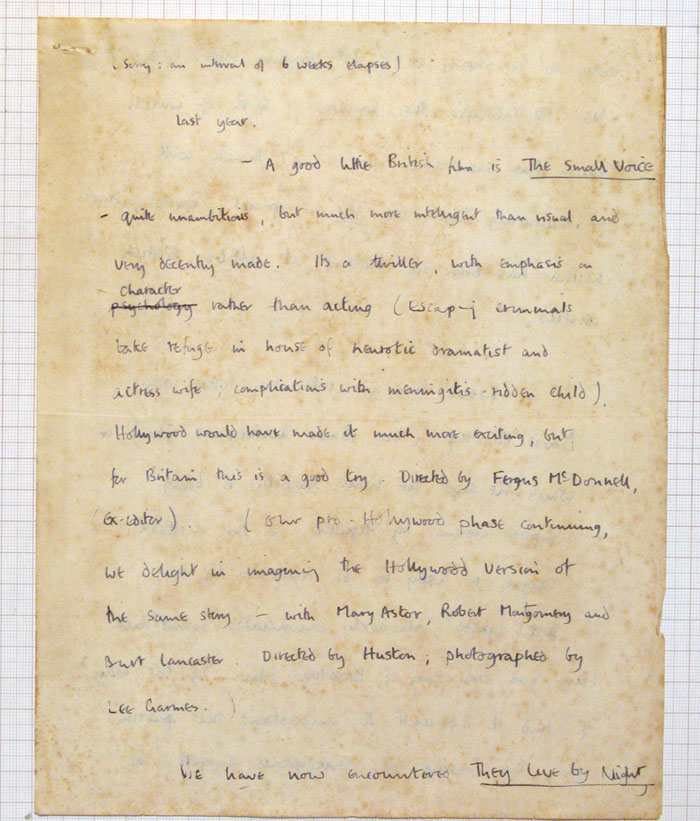 (Sorry: an interval of 6 weeks elapses)
last year.
– A good little British film is The Small Voice
– quite unambitious, but much more intelligent than usual, and
very decently made. Its a thriller, with emphasis on
character
psychology rather than acting (Escaping criminals
take refuge in house of neurotic dramatist and
actress wife; complications with meningitis-ridden child).
Hollywood would have made it much more exciting, but
for Britain this is a good try. Directed by Fergus McDonnell,
(ex-editor). (Our pro-Hollywood phase continuing,
we delight in imagining the Hollywood version of
the same story – with Mary Astor, Robert Montgomery and
Burt Lancaster. Directed by Huston; photographed by
Lee Garmes.)
We have now encountered They Live by Night